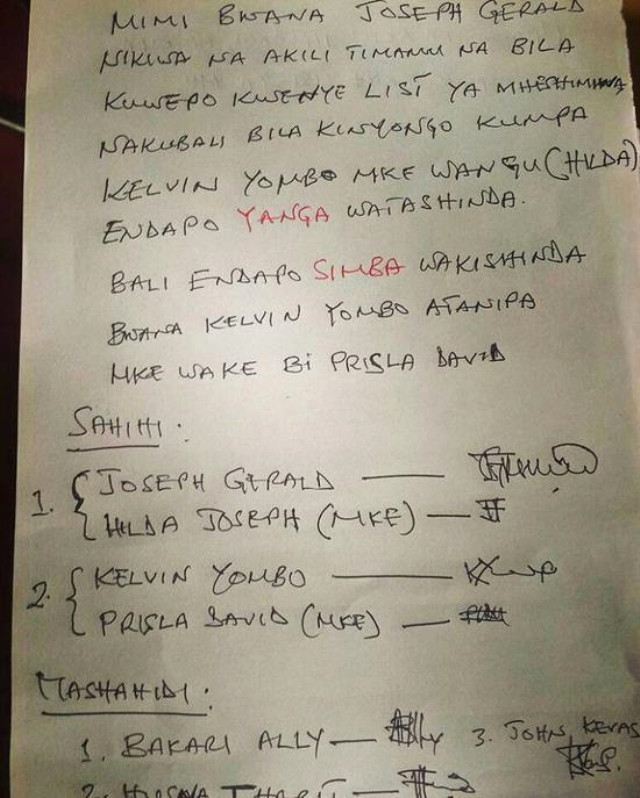 MIMI BWANA JOSEPH GERALD
NIKIWA NA AKILI TIMAMU NA BILA
KUWEPO KWENYE LIST YA MHESHIMIWA
NAKUBALI BILA KINYONGO KUMPA
KELVIN YOMBO MKE WANGU (HILDA)
ENDAPO YANGA WATASHINDA.
BALI ENDAPO SIMBA WAKISHINDA
BWANA KELVIN YOMBO ATANIPA
MKE WAKE Bi PRISLA DAVID
SAHIHI:
1. { JOSEPH GERALD —
HILDA JOSEPH (MKE) —
2. { KELVIN YOMBO —
PRISLA DAVID (MKE) —
MASHAHIDI:
1. BAKARI ALLY — 3. JOHN KEVAS
2.